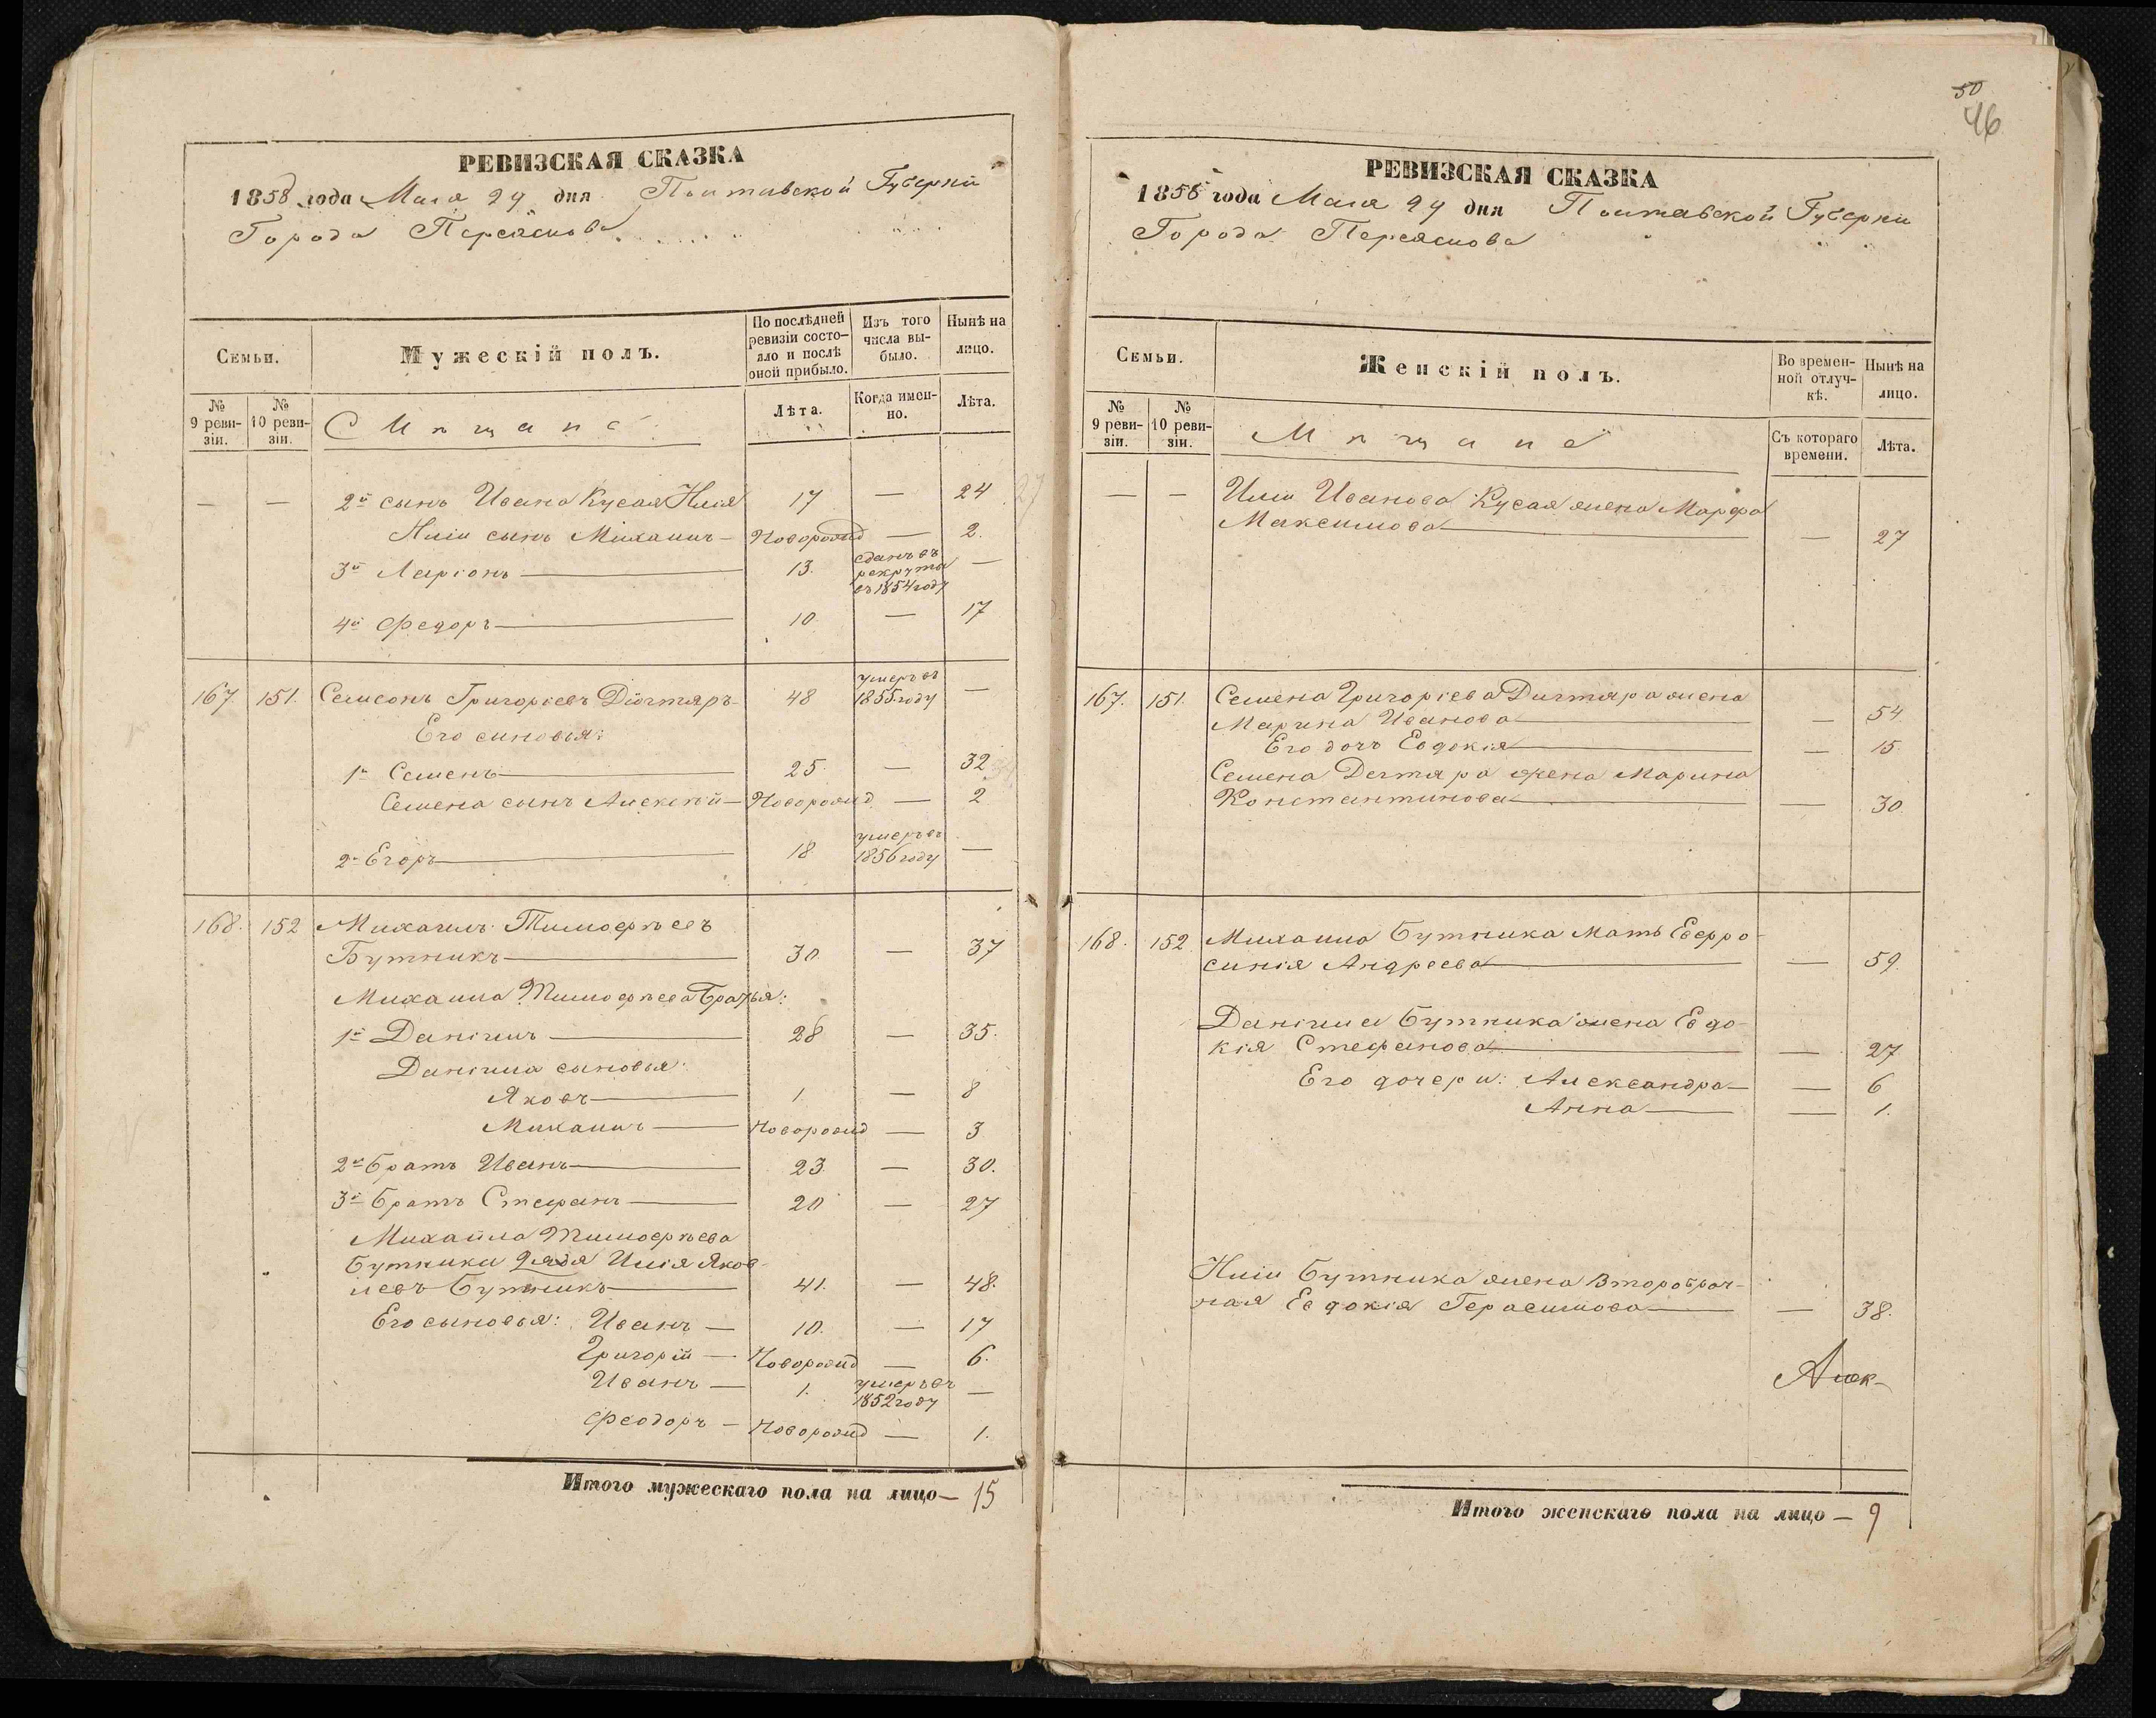 50
46
РЕВИЗСКАЯ СКАЗКА
1858 года Мая 29 дня Полтавской Губерніи
Города Переяслова
Семьи.
Мужескій полъ.
По послѣдней ревизіи состояло и послѣ оной прибыло.
Изъ того числа выбыло.
Нынѣ на лицо.
№ 9 ревизіи.
№ 10 ревизіи.
Мѣщане
Лѣта.
Когда именно.
Лѣта.
— — 2й сынъ Ивана Кусая Илія 17 — 24
Иліи сынъ Михаилъ — Новорожд — 2.
3й Ларіонъ — 13. сданъ въ рекруты въ 1854 году —
4й Федоръ — 10 — 17
167 151. Семеонъ Григоріевъ Діогтяръ — 48 умеръ въ 1855 году —
Его синовья:
1й Семенъ — 25 — 32
Семена сынъ Алексѣй — Новорожд — 2
2й Егоръ — 18 умеръ въ 1856 году —
168. 152 Михаилъ Тимофѣевъ
Бутникъ — 30 — 37
Михаила Тимофѣева Братья:
1й Даніилъ — 28 — 35.
Даніила сыновья:
Яковъ — 1. — 8
Михаилъ — Новорожд — 3
2й братъ Иванъ — 23 — 30.
3й братъ Стефанъ — 20 — 27
Михайла Тимофѣева
Бутника дядя Илія Яков-
левъ Бутникъ — 41. — 48.
Его сыновья: Иванъ — 10. — 17
Григорій — Новорожд — 6.
Иванъ — 1. умеръ въ 1852 году —
Феодоръ — Новорожд — 1.
Итого мужескаго пола на лицо — 15
РЕВИЗСКАЯ СКАЗКА
1858 года Мая 29 дня Полтавской Губерніи
Города Переяслова
Семьи.
Женскій полъ.
Во временной отлучкѣ.
Нынѣ на лицо.
№ 9 ревизіи.
№ 10 ревизіи.
Мѣщане
Съ котораго времени.
Лѣта.
— — Иліи Иванова Кусая жена Марфа
Максимова — — 27
167. 151 Семена Григоріева Дигтяра жена
Марина Иванова — — 54
Его дочь Евдокія — — 15
Семена Дегтяра жена Марина
Константинова — — 30.
168. 152 Михаила Бутника Мать Евфро-
синія Андреева — — 59.
Даніила Бутника жена Евдо-
кія Стефанова — — 27
Его дочери: Александра — — 6
Анна — — 1.
Иліи Бутника жена Второбрач-
ная Евдокія Герасимова — — 38.
Алек-
Итого женскаго пола на лицо — 9